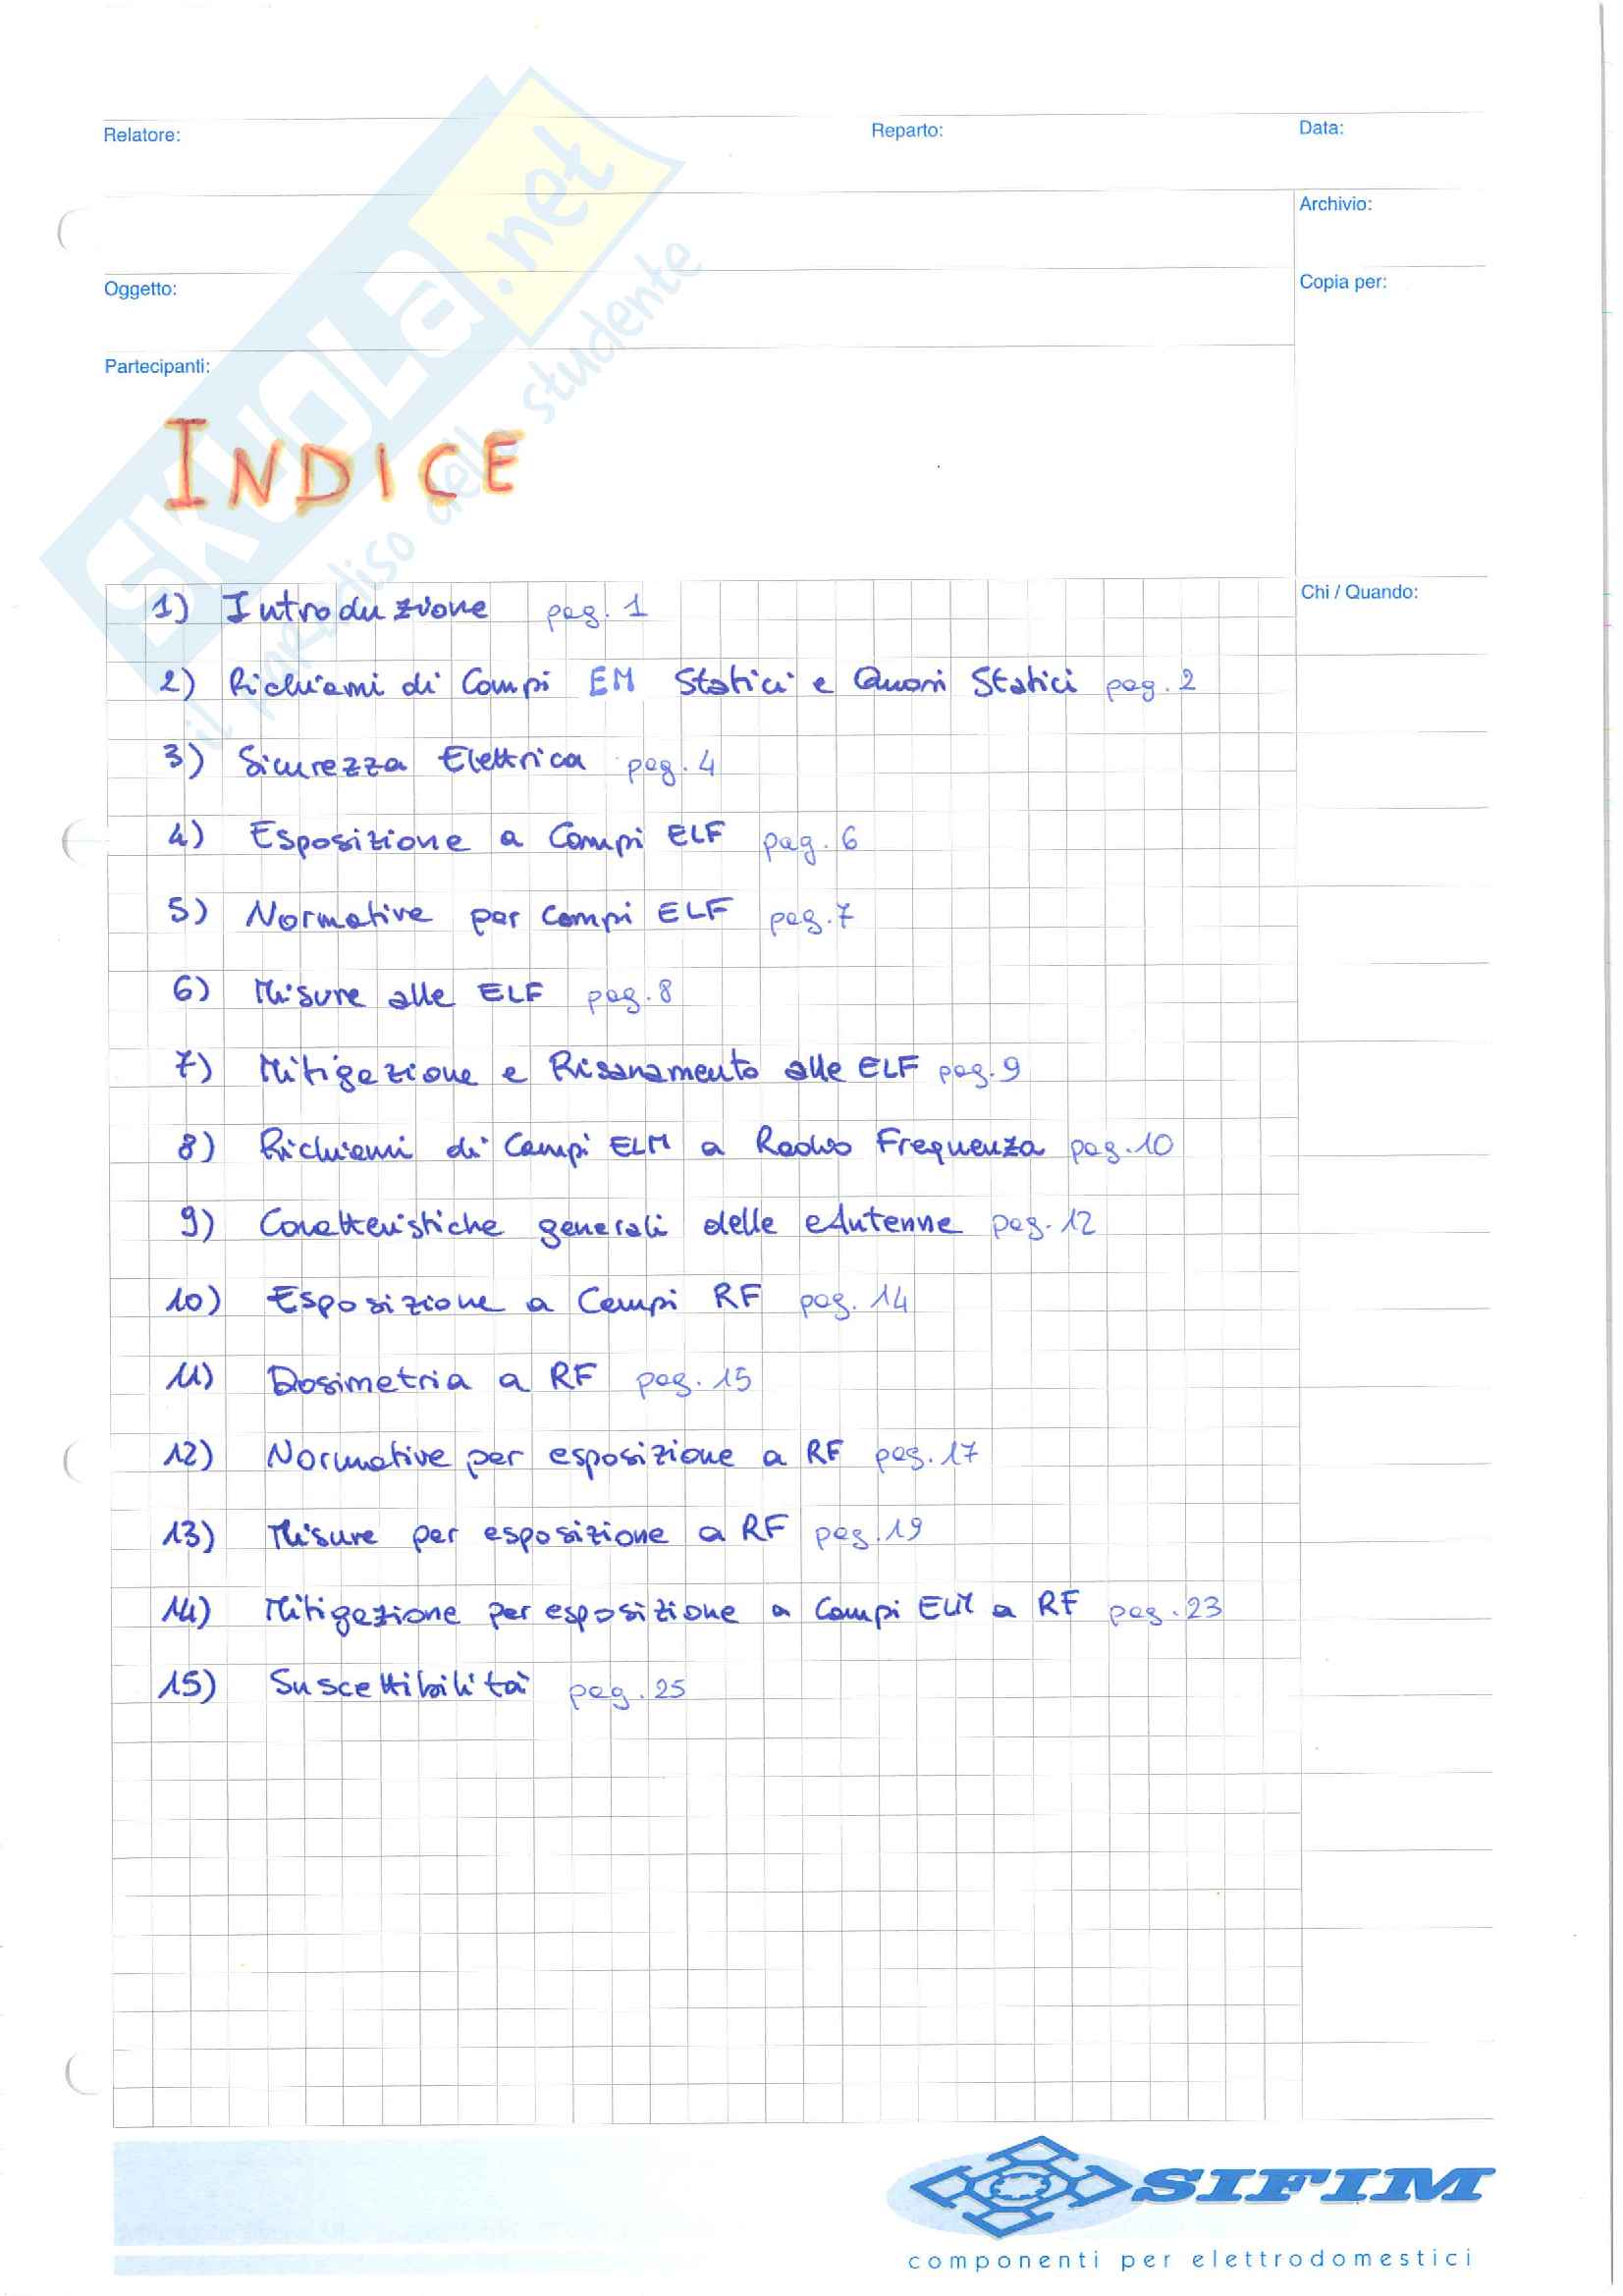 Relatore:
Reparto:
Data:
Archivio:
Oggetto:
Copia per:
Partecipanti:
SKUOLA.net
il paradiso dello studente
INDICE
Chi / Quando:
1) Introduzione pag. 1
2) Richiami di Campi EM Statici e Quasi Statici pag. 2
3) Sicurezza Elettrica pag. 4
4) Esposizione a Campi ELF pag. 6
5) Normative per Campi ELF pag. 7
6) Misure alle ELF pag. 8
7) Mitigazione e Risanamento alle ELF pag. 9
8) Richiami di Campi ELM a Radio Frequenza pag. 10
9) Caratteristiche generali delle Antenne pag. 12
10) Esposizione a Campi RF pag. 14
11) Dosimetria a RF pag. 15
12) Normative per esposizione a RF pag. 17
13) Misure per esposizione a RF pag. 19
14) Mitigazione per esposizione a Campi ELM a RF pag. 23
15) Suscettibilità pag. 25
SIFIM
componenti per elettrodomestici